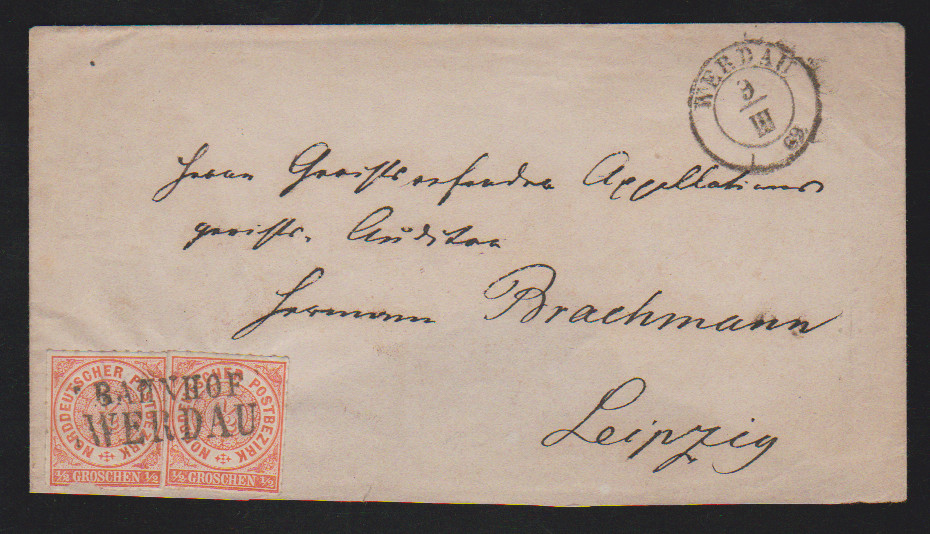 WERDAU
9
III
69
Herrn Gerichtsreferendar Appellations
gerichts-Auditor
Hermann Brachmann
Leipzig
NORDDEUTSCHER POSTBEZIRK
1/2 GROSCHEN 1/2
NORDDEUTSCHER POSTBEZIRK
1/2 GROSCHEN 1/2
BAHNHOF
WERDAU